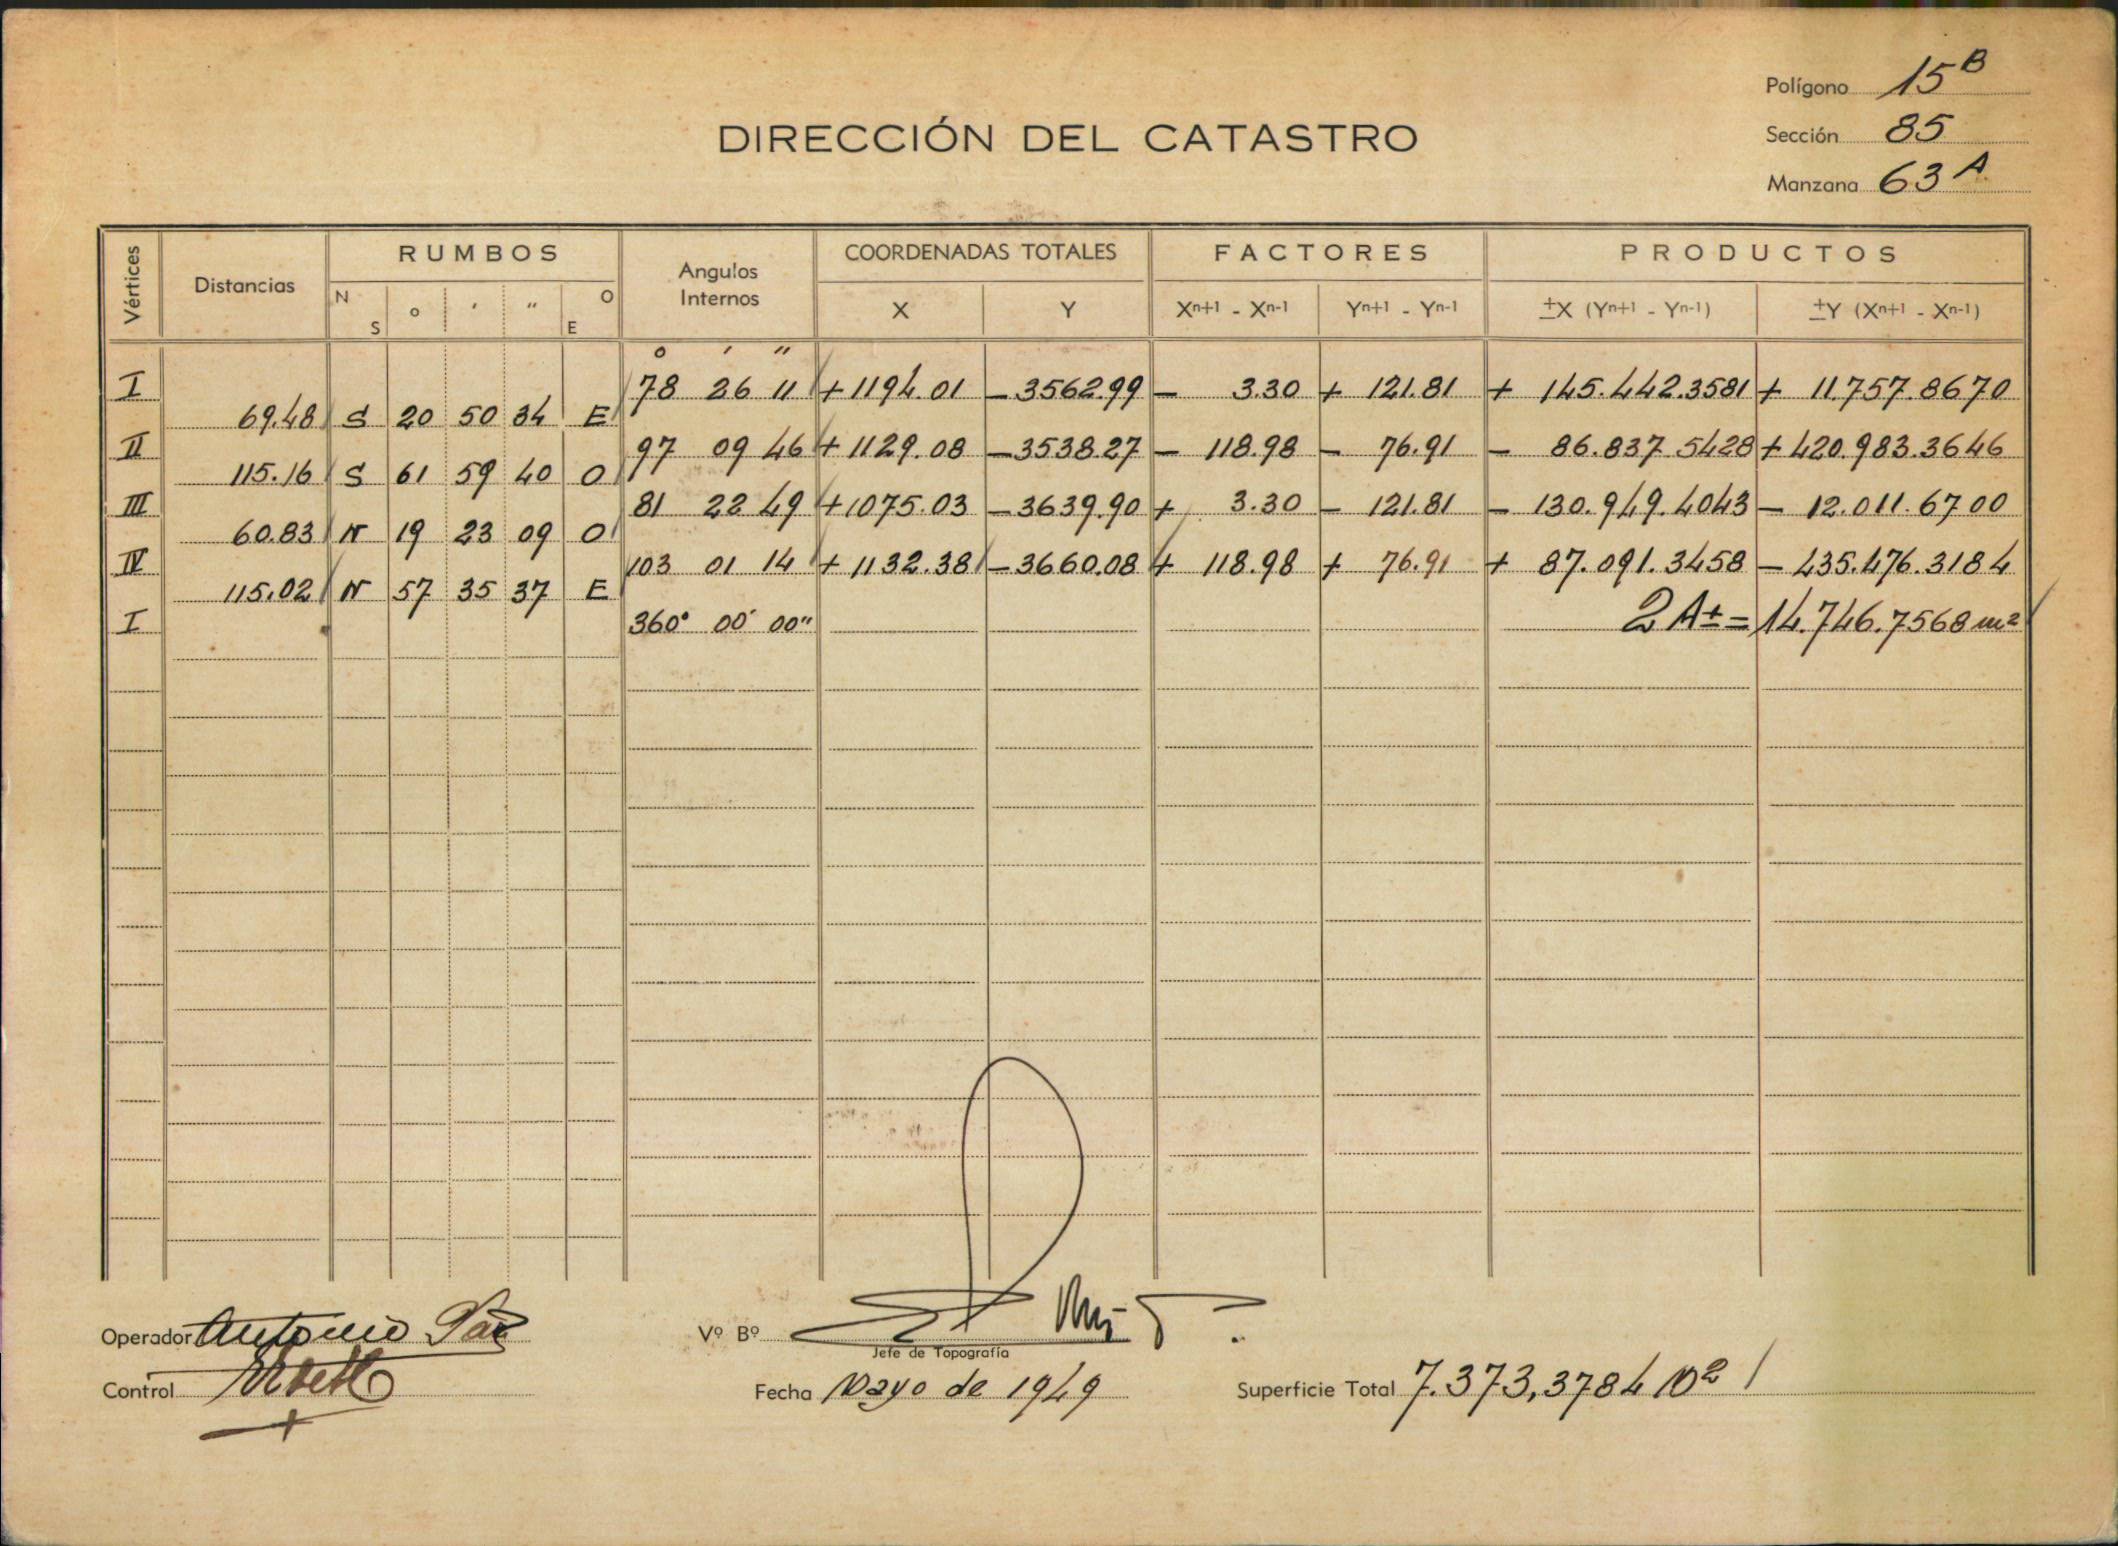 Polígono 15 B
DIRECCIÓN DEL CATASTRO
Sección 85
Manzana 63 A
Vértices Distancias RUMBOS Angulos Internos COORDENADAS TOTALES FACTORES PRODUCTOS
N S o ' " O E X Y Xn+1 - Xn-1 Yn+1 - Yn-1 ±X (Yn+1 - Yn-1) ±Y (Xn+1 - Xn-1)
o ' "
I 78 26 11 + 1194.01 - 3562.99 - 3.30 + 121.81 + 145.442.3581 + 11.757.8670
69.48 S 20 50 34 E
II 97 09 46 + 1129.08 - 3538.27 - 118.98 - 76.91 - 86.837.5428 + 420.983.3646
115.16 S 61 59 40 O
III 81 22 49 + 1075.03 - 3639.90 + 3.30 - 121.81 - 130.949.4043 - 12.011.6700
60.83 N 19 23 09 O
IV 103 01 14 + 1132.38 - 3660.08 + 118.98 + 76.91 + 87.091.3458 - 435.476.3184
115.02 N 57 35 37 E
I 360° 00' 00" 2 A ± = 14.746.7568 m2
Operador Antonio Vº Bº
Jefe de Topografía
Control Fecha Mayo de 1949 Superficie Total 7.373,3784 m2